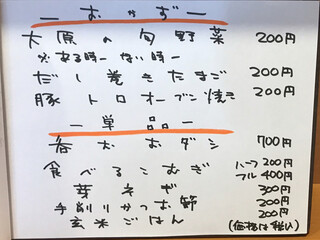 ーおかずー
大原の旬野菜 200円
※ある時ー ない時ー
だし巻きたまご 200円
豚トロオーブン焼き 200円
ー単品ー
呑むおダシ 700円
食べるこむぎ ハーフ 200円
フル 400円
芽ネギ 300円
手削りかつお節 200円
玄米ごはん 200円
(価格は税込)